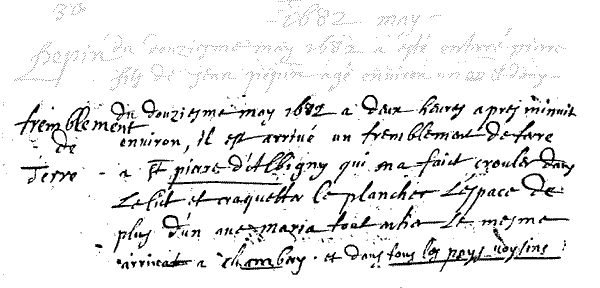 30 1682 may
Pepin du douziesme may 1682 a esté enterré pierre
fils de Jean pepin agé environ un an & demy
tremblement du douziesme may 1682 a deux heures apres minuit
de environ, il est arrivé un tremblement de terre
Terre a St pierre d'Albigny qui ma faict crouler dans
Le lict et craquetter le plancher L'espace de
plus d'un ave maria tout entier Le mesme
arrivat a chambery et dans tous les pays voysins